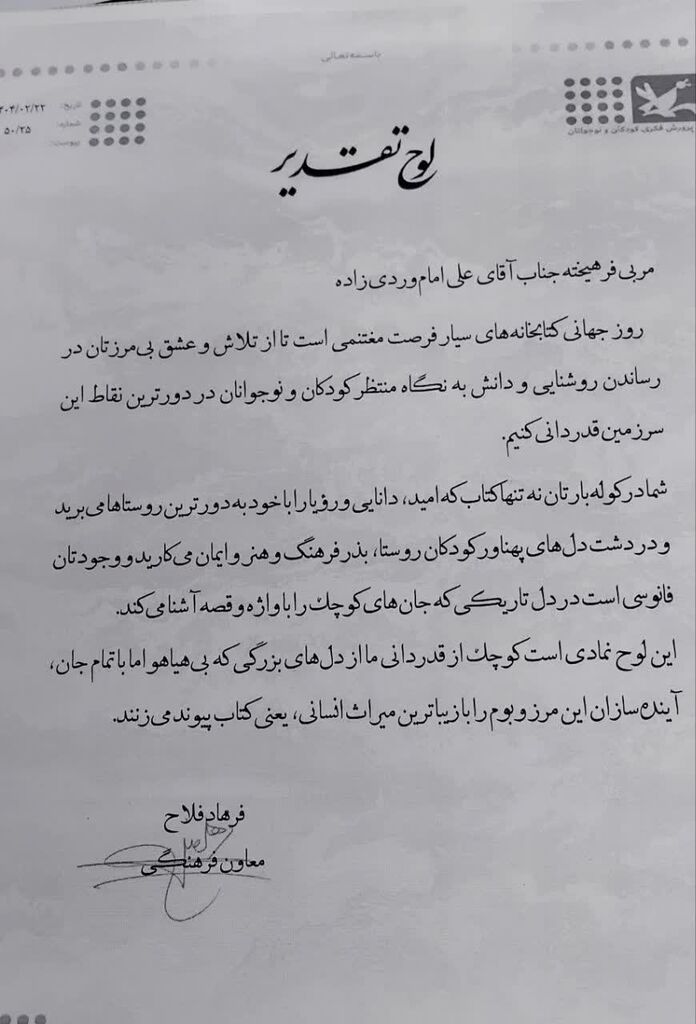 باسمه تعالی
پرورش فکری کودکان و نوجوانان
تاریخ: ۴۰۴/۰۲/۲۲
شماره: ۵۰/۲۵
پیوست:
لوح تقدیر
مربی فرهیخته جناب آقای علی امام وردی زاده
روز جهانی کتابخانه‌های سیار فرصت مغتنمی است تا از تلاش و عشق بی‌مرزتان در
رساندن روشنایی و دانش به نگاه منتظر کودکان و نوجوانان در دورترین نقاط این
سرزمین قدردانی کنیم.
شما در کوله بارتان نه تنها کتاب که امید، دانایی و رؤیا را با خود به دورترین روستاها می‌برید
و در دشت دل‌های پهناور کودکان روستا، بذر فرهنگ و هنر و ایمان می‌کارید و وجودتان
فانوسی است در دل تاریکی که جان‌های کوچك را با واژه و قصه آشنا می‌کند.
این لوح نمادی است کوچك از قدردانی ما از دل‌های بزرگی که بی‌هیاهو اما با تمام جان،
آینده‌سازان این مرز و بوم را با زیباترین میراث انسانی، یعنی کتاب پیوند می‌زنند.
فرهاد فلاح
معاون فرهنگی